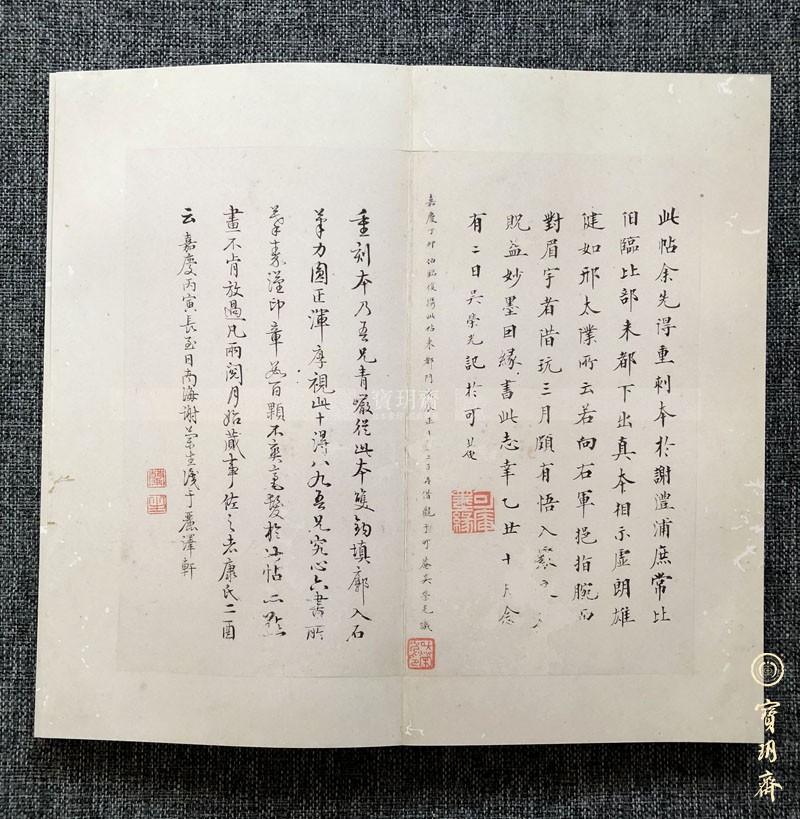 此帖余先得重刺本於謝澧浦庶常比
伯臨比部来都下出真本相示虚朗雄
健如邢太僕所云若向右軍挹指腕而
對眉宇者借玩三月頗有悟入
貺益妙墨因緣書此志幸乙丑十月念
有二日吴榮光記於可盦
可盦
墨緣
嘉慶丁卯伯臨復携此帖来都門
借觀於可盦吴榮光識
重刻本乃吾兄青巖從此本雙鉤填廓入石
筆力圓正渾厚視此十得八九吾兄究心六書所
篆漢印章數百顆不爽毫髮於此帖一點
畫不肯放過凡兩閱月始蕆事佐之者康氏二酉
云嘉慶丙寅長至日南海謝蘭生識于麗澤軒
蘭生
寶玥齋
寶玥齋